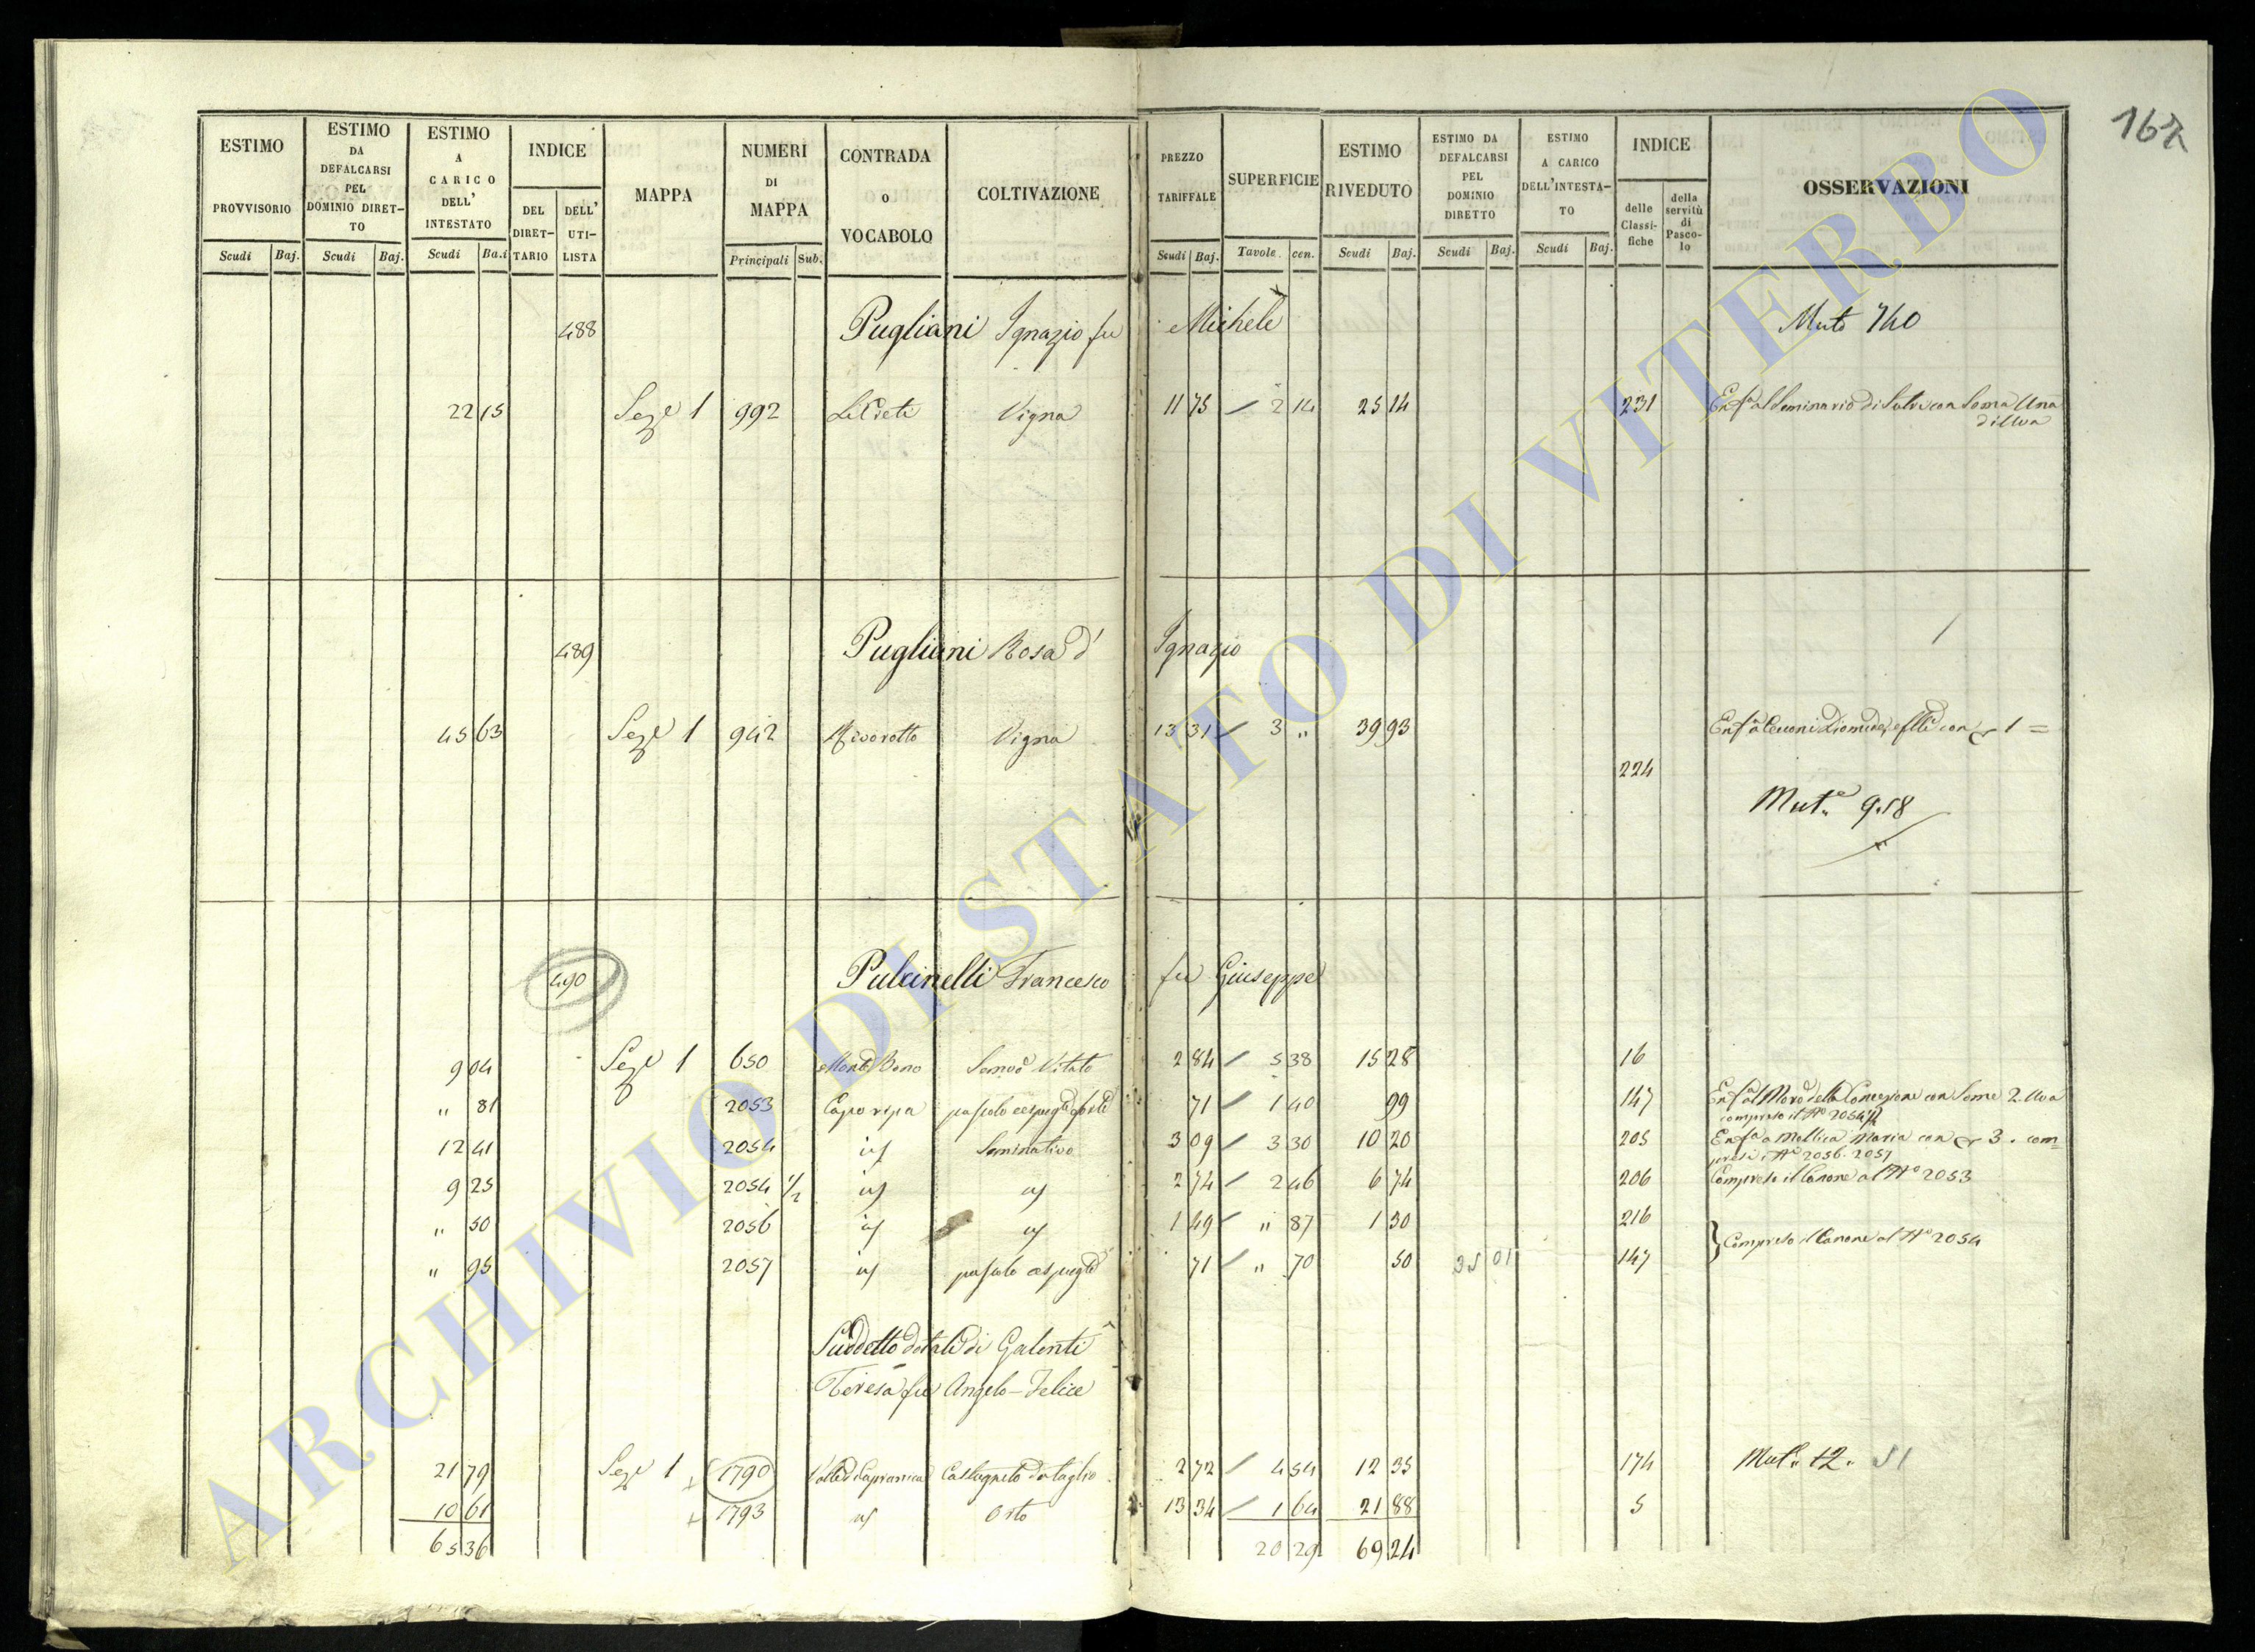 167
ESTIMO PROVVISORIO Scudi Baj.
ESTIMO DA DEFALCARSI PEL DOMINIO DIRET-TO Scudi Baj.
ESTIMO A CARICO DELL' INTESTATO Scudi Ba.i
INDICE DEL DIRET-TARIO DELL' UTI-LISTA
MAPPA
NUMERI DI MAPPA Principali Sub.
CONTRADA o VOCABOLO
COLTIVAZIONE
PREZZO TARIFFALE Scudi Baj.
SUPERFICIE Tavole cen.
ESTIMO RIVEDUTO Scudi Baj.
ESTIMO DA DEFALCARSI PEL DOMINIO DIRETTO Scudi Baj.
ESTIMO A CARICO DELL'INTESTA-TO Scudi Baj.
INDICE delle Classi-fiche della servitù di Pasco-lo
OSSERVAZIONI
488 Pugliani Ignazio fu Michele Muto 740
22 15 Seze 1 992 Vigna 11 75 2 14 25 14 231 Enfa al Seminario di Sutri con Soma Una
d'Uva
489 Pugliani Rosa d' Ignazio
45 63 Seze 1 942 Vigna 13 31 3 " 39 93 con 1 =
224
Mut. 918
490 Pulcinelli Francesco fu Giuseppe
9 04 Seze 1 650 Monte Bono Semvo Vitato 2 84 5 38 15 28 16
" 81 2053 Caporipa pascolo cespugto forte 71 1 40 99 147 Enfa al Mro della Concezione con Some 2 Uva
compreso il No 2054 1/2
12 41 2054 id Seminativo 3 09 3 30 10 20 205 Enfa a Mollica Maria con 3. com=
presi i No 2056. 2057
9 25 2054 1/2 id id 2 74 2 46 6 74 206 Compreso il Canone al No 2053
" 50 2056 id id 1 49 " 87 1 30 216
Compreso il Canone al No 2054
" 95 2057 id pascolo cespugto 71 " 70 50 35 01 147
Suddetto dotale di Galenti
Teresa fu Angelo-Felice
21 79 Seze 1 1790 Valle di Capranica Castagneto da taglio 2 72 4 54 12 35 174 Mut. 12. 51
10 61 1793 id Orto 13 34 1 64 21 88 5
65 36 20 29 69 24
ARCHIVIO DI STATO DI VITERBO